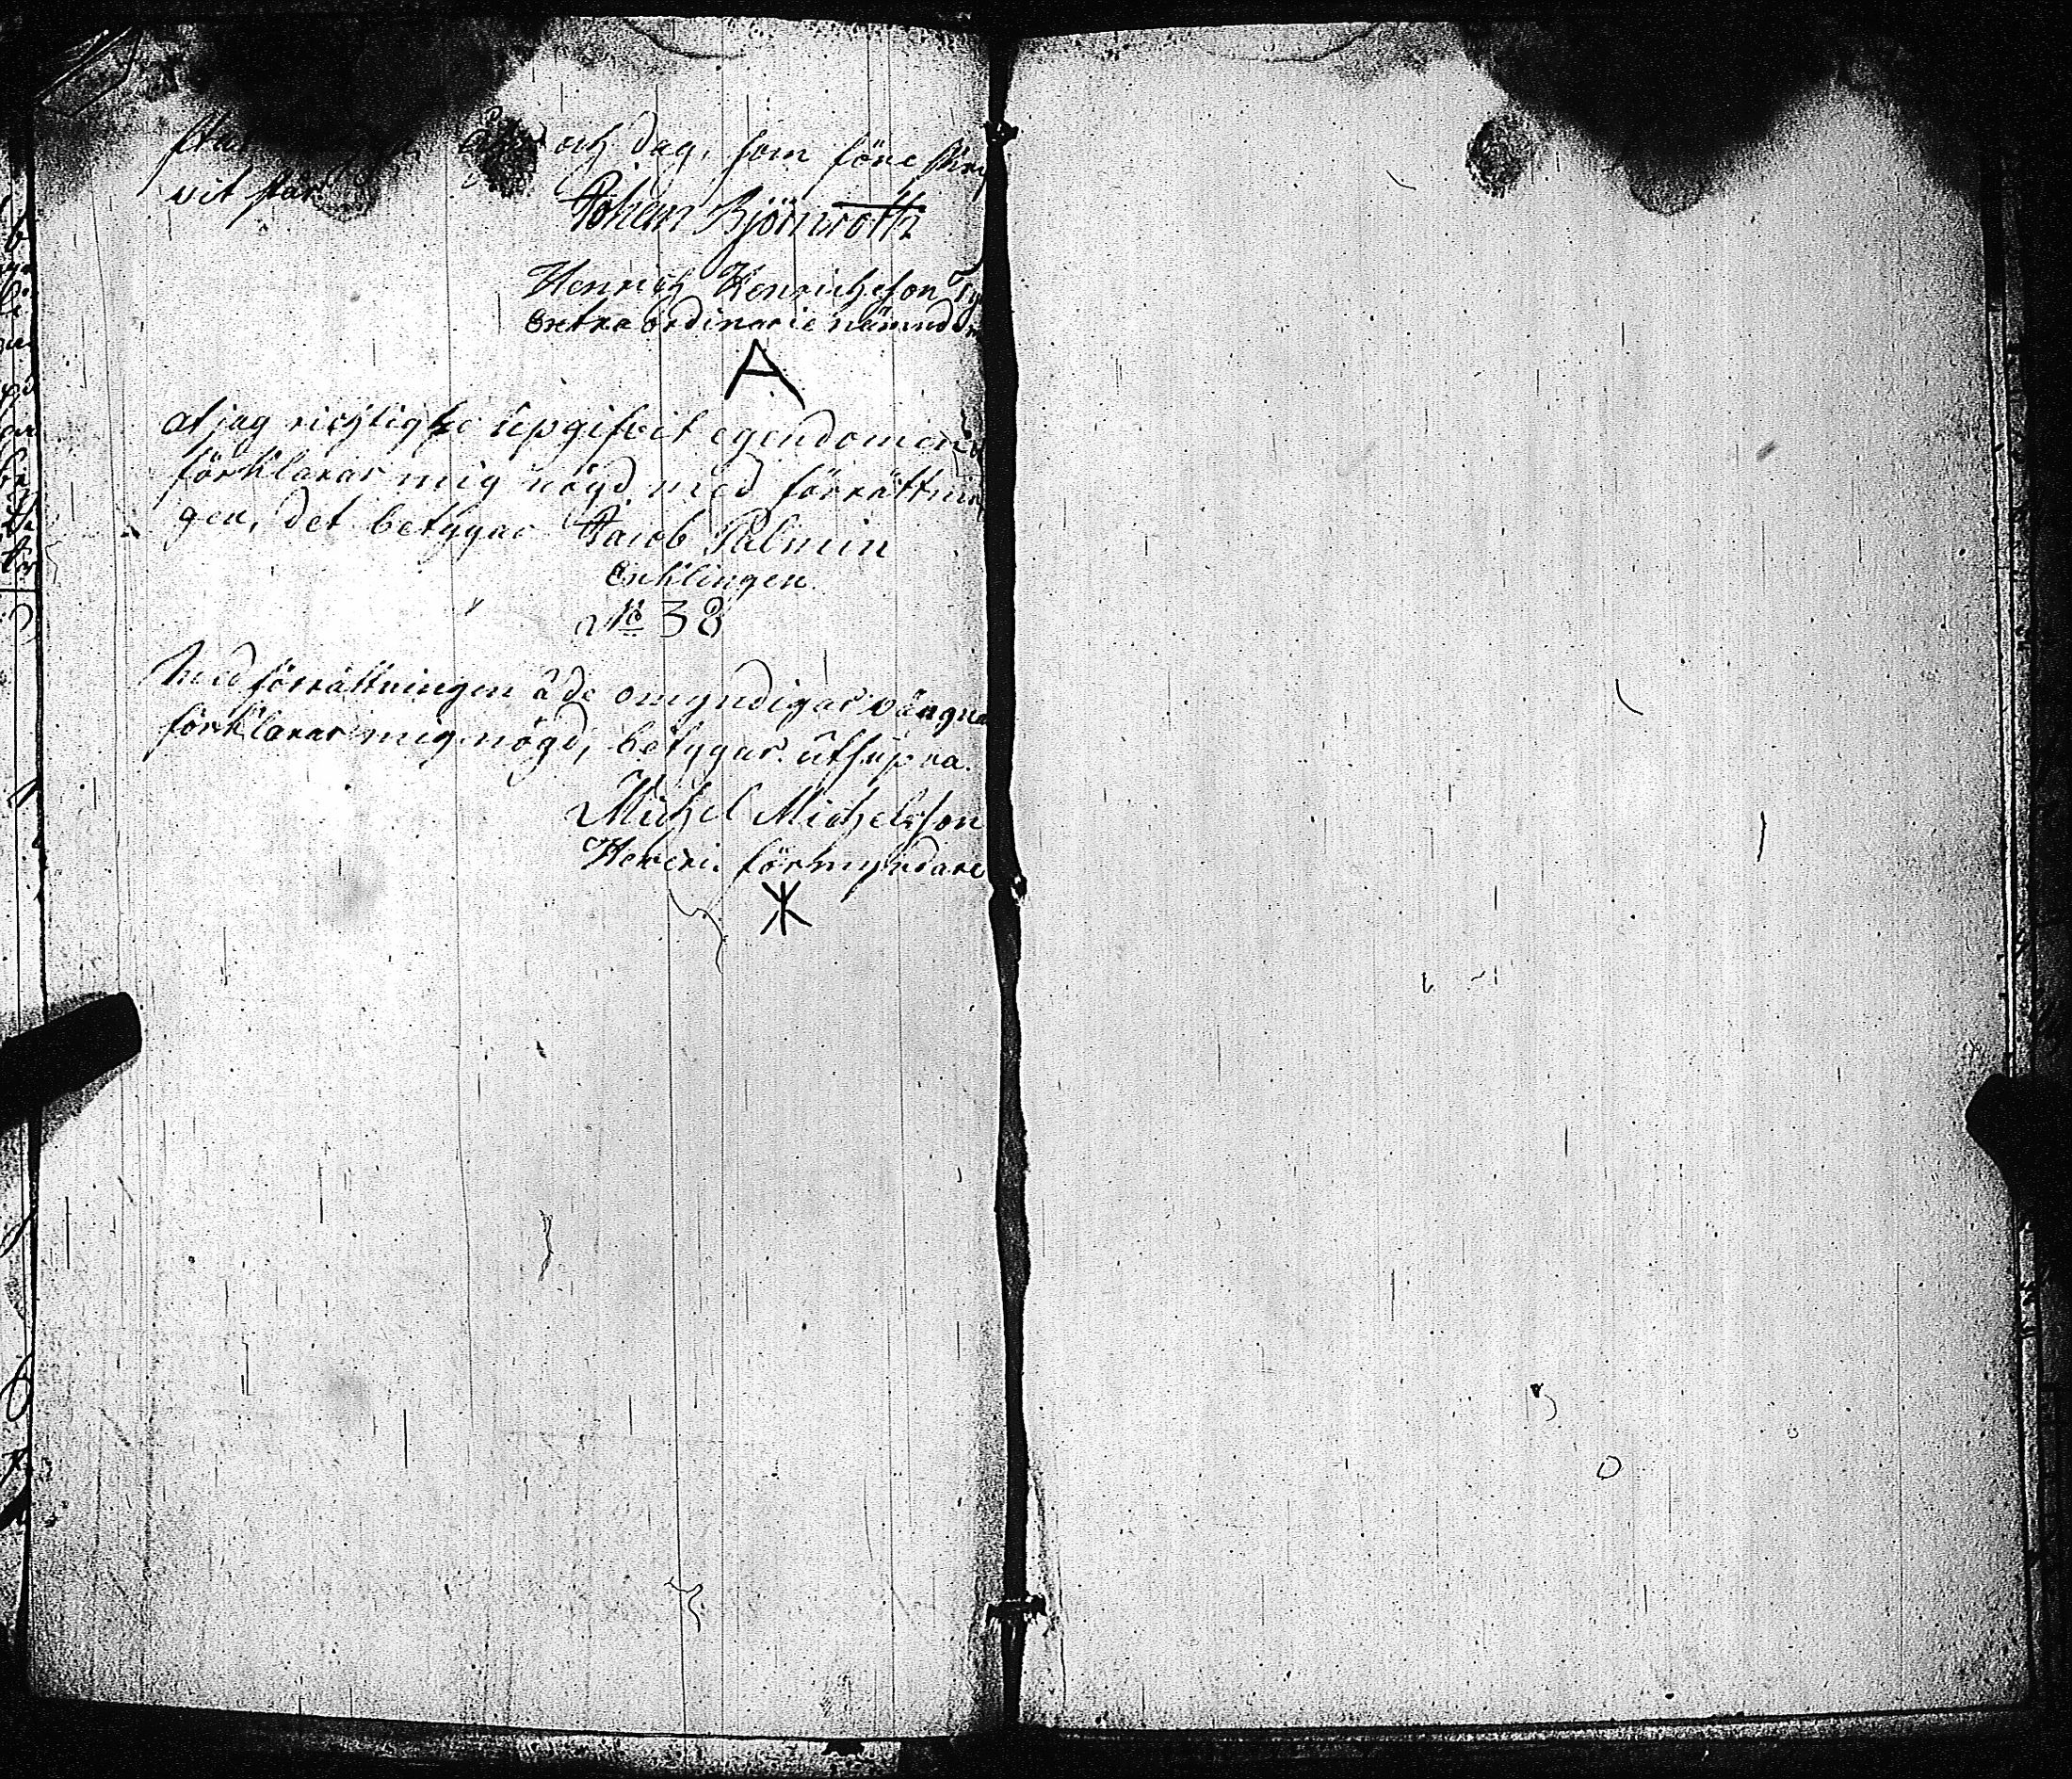 åhr och dag, som före skre
vit står
Johan Björnroth
Henrich Henrichsson
Extra ordinarie nämnd
A
at jag richtighe upgifvit egendomen
förklarar mig nögd med förrättnin
gen, det betygar Jacob Palmin
Enklingen
No 38
Med förrättningen å de omyndigas vägna
förklarar mig nögd, betygar ut supra
Michel Michelsson
förmyndare